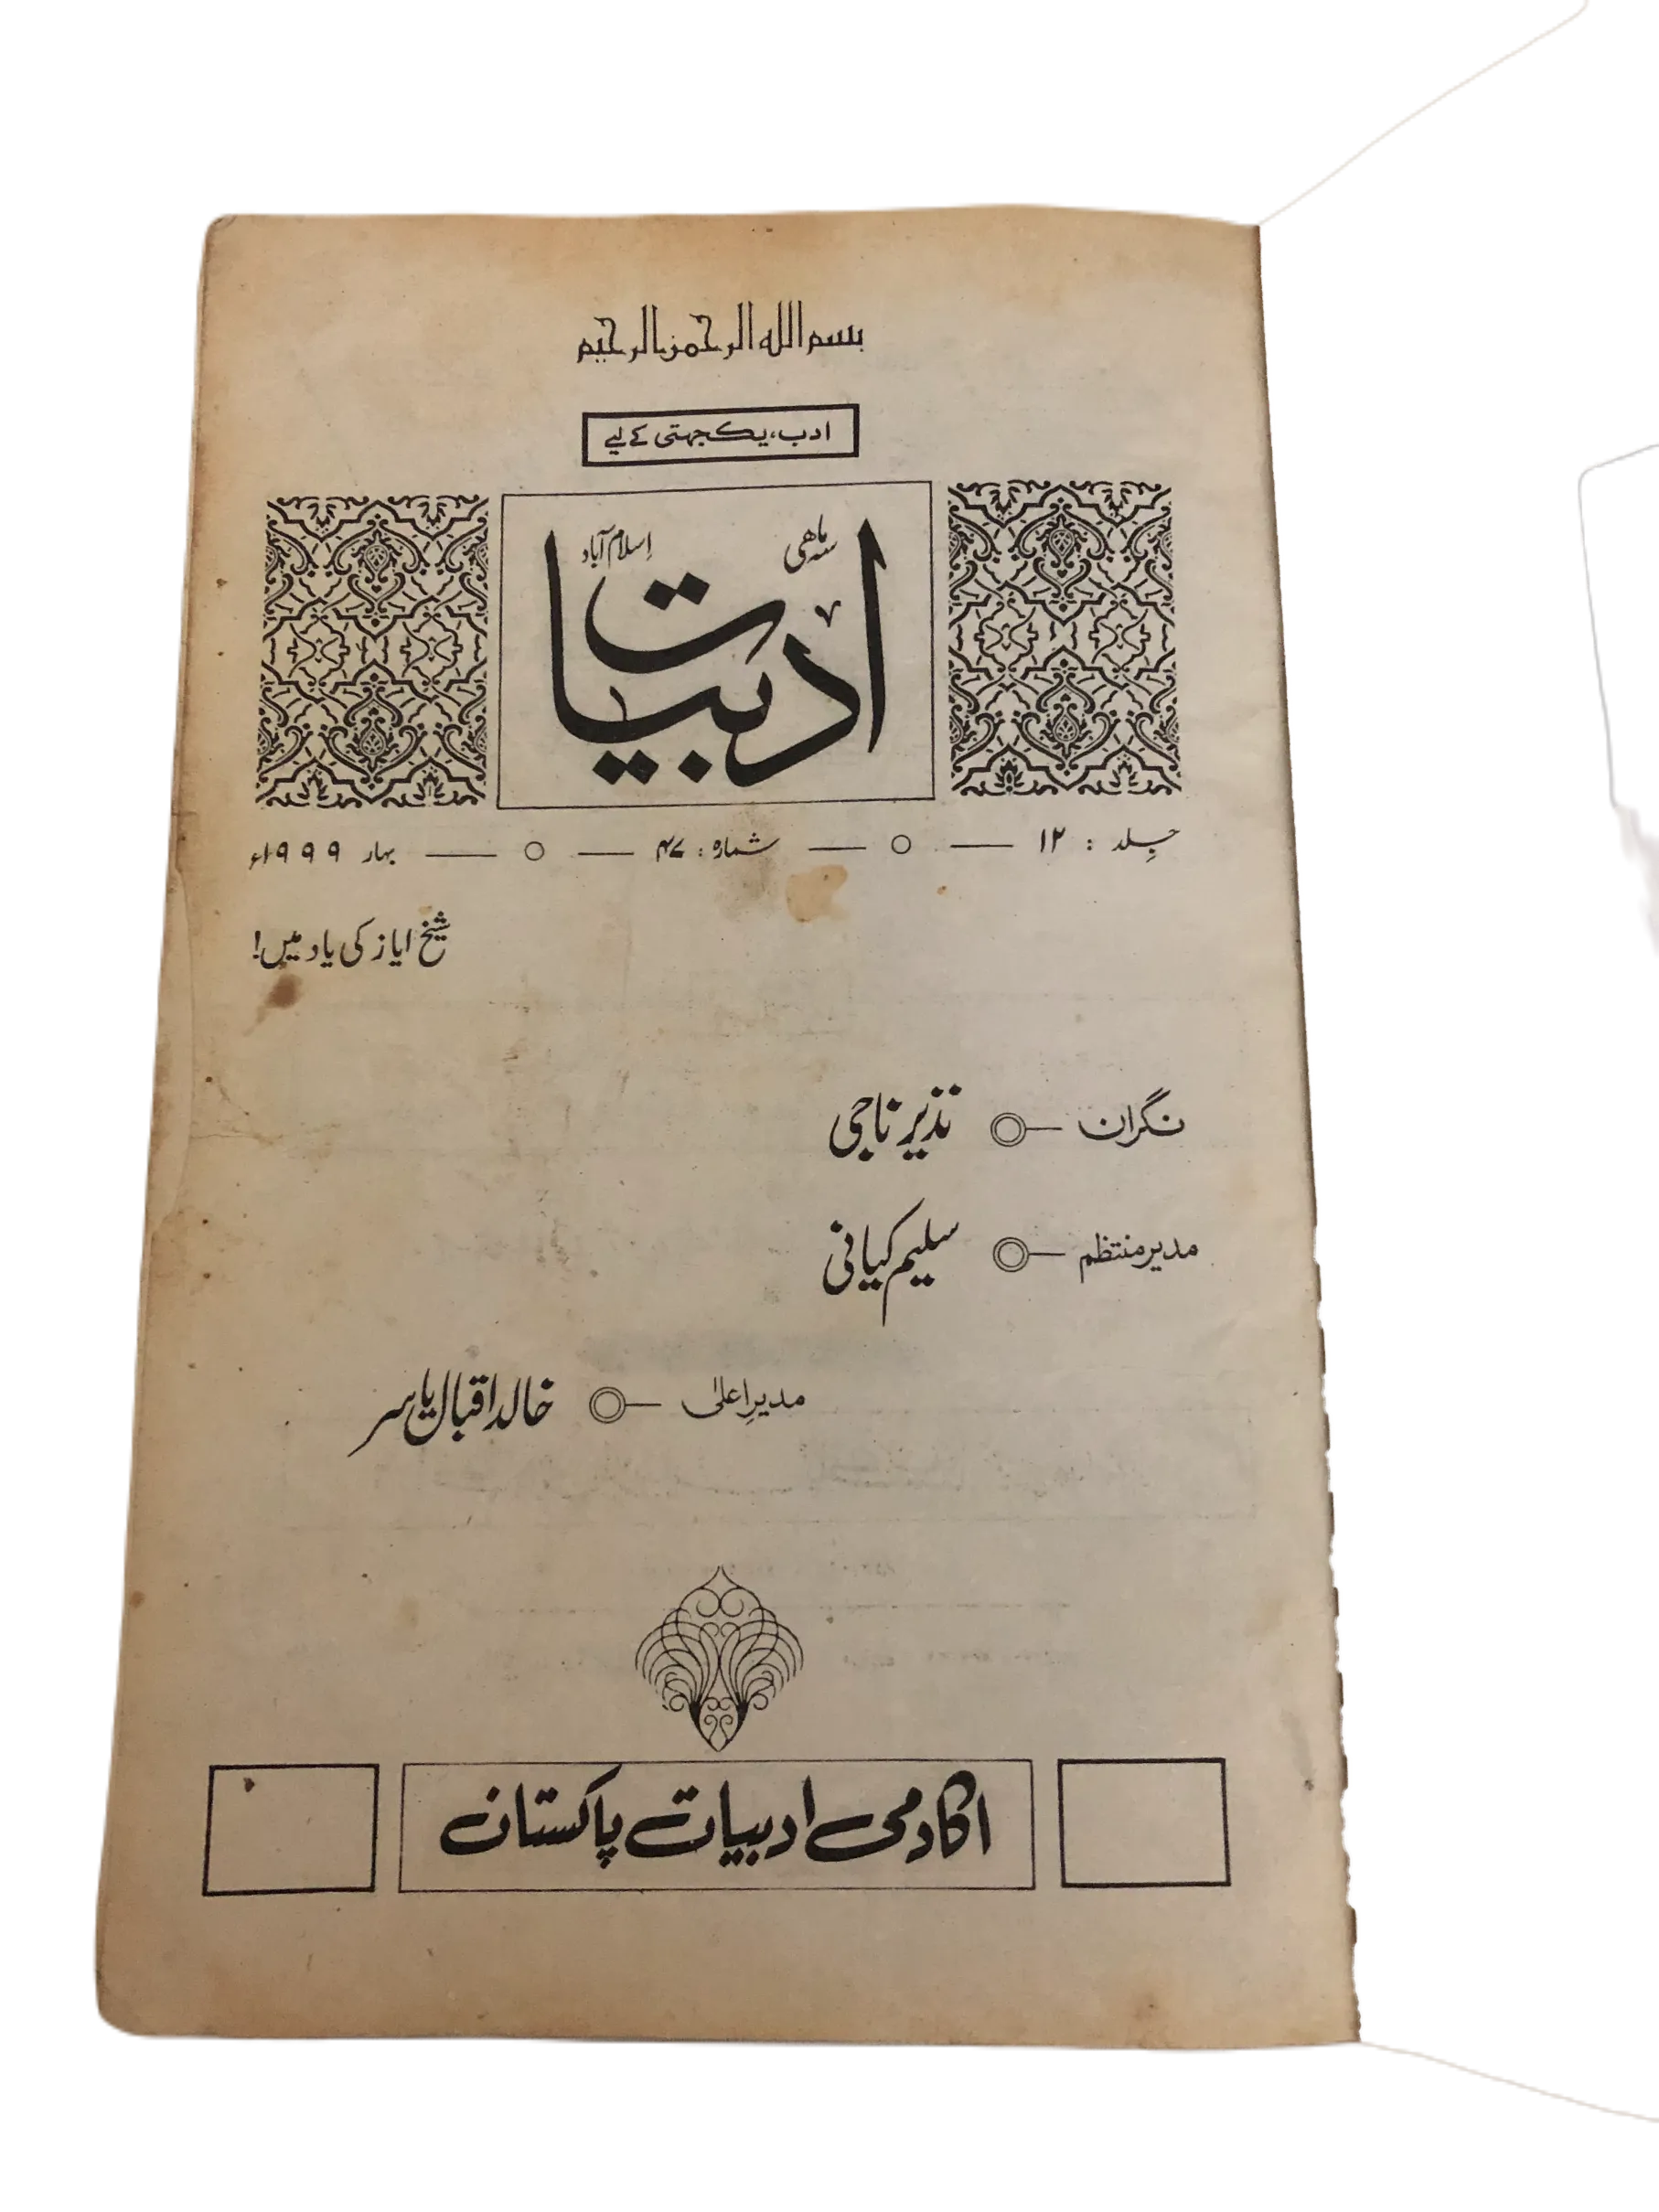 بسم الله الرحمن الرحیم
ادب، یک جہتی کے لیے
سہ ماہی
اسلام آباد
ادبیات
جِلد : ۱۲ — ○ — شمارہ : ۴۷ — ○ — بہار ۱۹۹۹ء
شیخ ایاز کی یاد میں!
نگران — نذیر ناجی
مدیر منتظم — سلیم کیانی
مدیرِ اعلیٰ — خالد اقبال یاسر
اکادمی ادبیات پاکستان